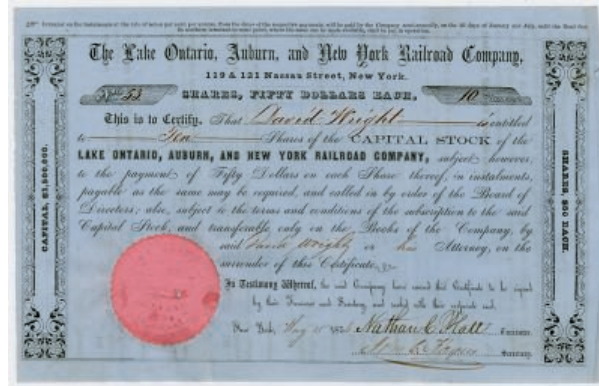 The Lake Ontario, Auburn, and New York Railroad Company,
119 & 121 Nassau Street, New York.
No. 53 SHARES, FIFTY DOLLARS EACH, 10 Shares.
This is to Certify, That David Wright is entitled
to Ten Shares of the CAPITAL STOCK of the
LAKE ONTARIO, AUBURN, AND NEW YORK RAILROAD COMPANY, subject however,
to the payment of Fifty Dollars on each Share thereof, in instalments,
payable as the same may be required, and called in by order of the Board of
Directors; also, subject to the terms and conditions of the subscription to the said
Capital Stock, and transferable only on the Books of the Company, by
said David Wright or his Attorney, on the
surrender of this Certificate.
In Testimony Whereof, the said Company have caused this Certificate to be signed
by their Treasurer and Secretary, and sealed with their corporate seal,
New York, May
Nathan C. Hall Treasurer.
Secretary.
CAPITAL, $1,500,000.
SHARES, $50 EACH.